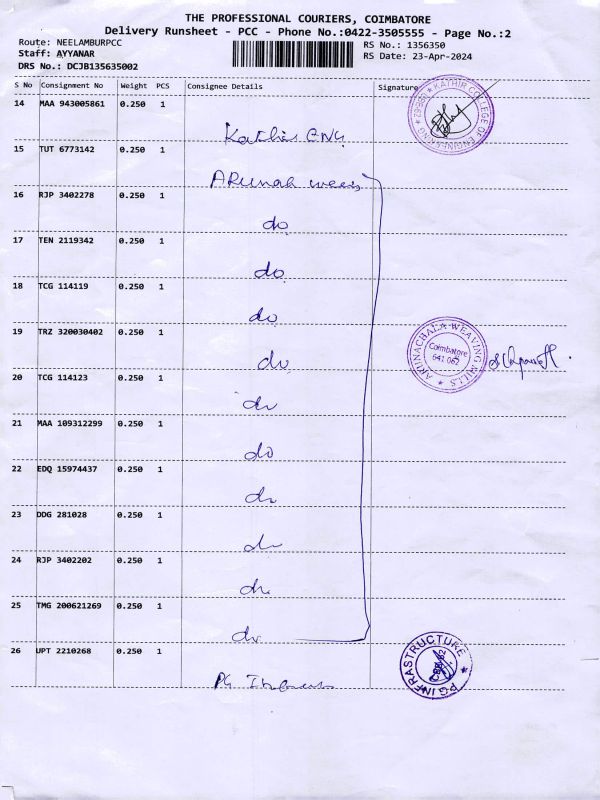 THE PROFESSIONAL COURIERS, COIMBATORE
Delivery Runsheet - PCC - Phone No.:0422-3505555 - Page No.:2
Route: NEELAMBURPCC
Staff: AYYANAR
DRS No.: DCJB135635002
RS No.: 1356350
RS Date: 23-Apr-2024
S No Consignment No Weight PCS Consignee Details Signature
14 MAA 943005861 0.250 1
Kathir ENG.
KATHIR COLLEGE OF ENGINEERING
15 TUT 6773142 0.250 1
16 RJP 3402278 0.250 1
do
17 TEN 2119342 0.250 1
do
18 TCG 114119 0.250 1
do
19 TRZ 320030402 0.250 1
do
ARUNACHALA WEAVING MILLS
Coimbatore
641 062
20 TCG 114123 0.250 1
do
21 MAA 109312299 0.250 1
do
22 EDQ 15974437 0.250 1
do
23 DDG 281028 0.250 1
do
24 RJP 3402202 0.250 1
do
25 TMG 200621269 0.250 1
do
26 UPT 2210268 0.250 1
PG
PG INFRASTRUCTURE